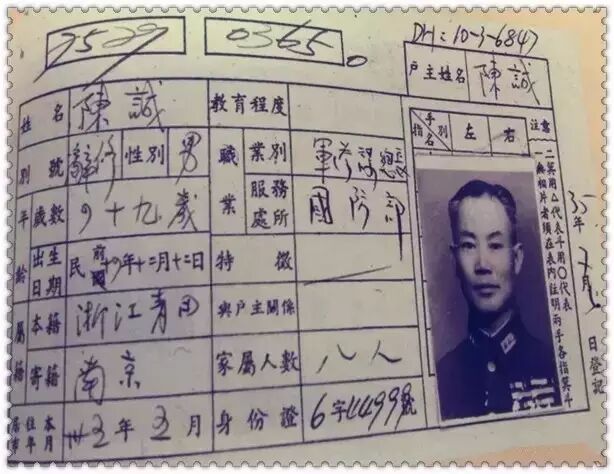 7529 0365
DH:10-3-6847
戶主姓名 陳誠
姓名 陳誠 教育程度
別號 辭修 性別 男 職業 業別 軍
年齡 歲數 四十九歲 服務處所 國防部
出生日期 民前 年十二月十二日 特徵
屬籍 本籍 浙江青田 與戶主關係
寄籍 南京 家屬人數 八人
居住本市年月 卅五年五月 身份證 6字 號
指名 手別 左 右 注意
一 箕用△代表斗用〇代表
二 無相片者須在表內註明兩手各指箕斗
35年 月 日登記